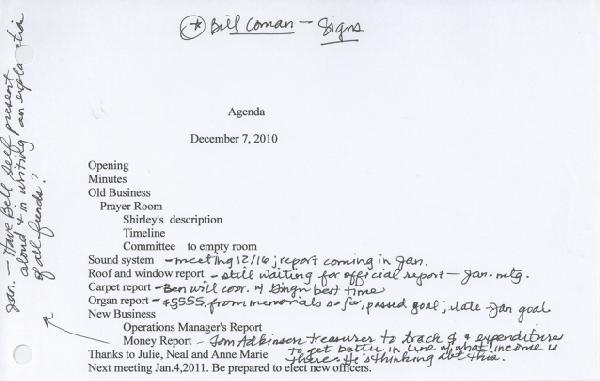 * Bill Coman – Signs
Jan. – Have Bill Self present
aloud & in writing an explanation
of all funds?
Agenda
December 7, 2010
Opening
Minutes
Old Business
Prayer Room
Shirley's description
Timeline
Committee to empty room
Sound system – meeting 12/16; report coming in Jan.
Roof and window report – still waiting for official report – Jan. mtg.
Carpet report – Ben will coor. best time
Organ report – $555 from memorials so far, passed goal, late-Jan goal
New Business
Operations Manager's Report
Money Report – Tom Adkinson treasurer to track & expenditures
to get better in line of what income is
there. He's thinking abt this.
Thanks to Julie, Neal and Anne Marie
Next meeting Jan.4,2011. Be prepared to elect new officers.